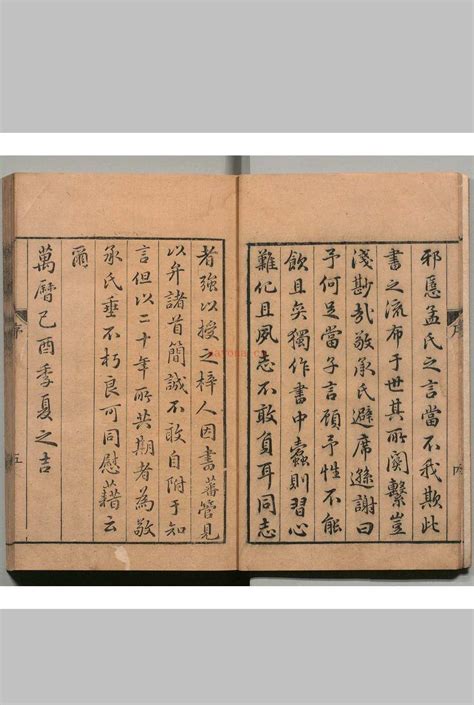 邪慝孟氏之言當不我欺此
書之流布于世其所関繫豈
淺尠哉敬承氏避席遜謝曰
予何足當子言顧予性不能
飲且矣獨作書中蠹則習心
難化且夙志不敢負耳同志
序
四
者強以授之梓人因書蕃管見
以弁諸首簡誠不敢自附于知
言但以二十年所共期者為敬
承氏垂不朽良可同慰藉云
爾
萬曆己酉季夏之吉
序
五